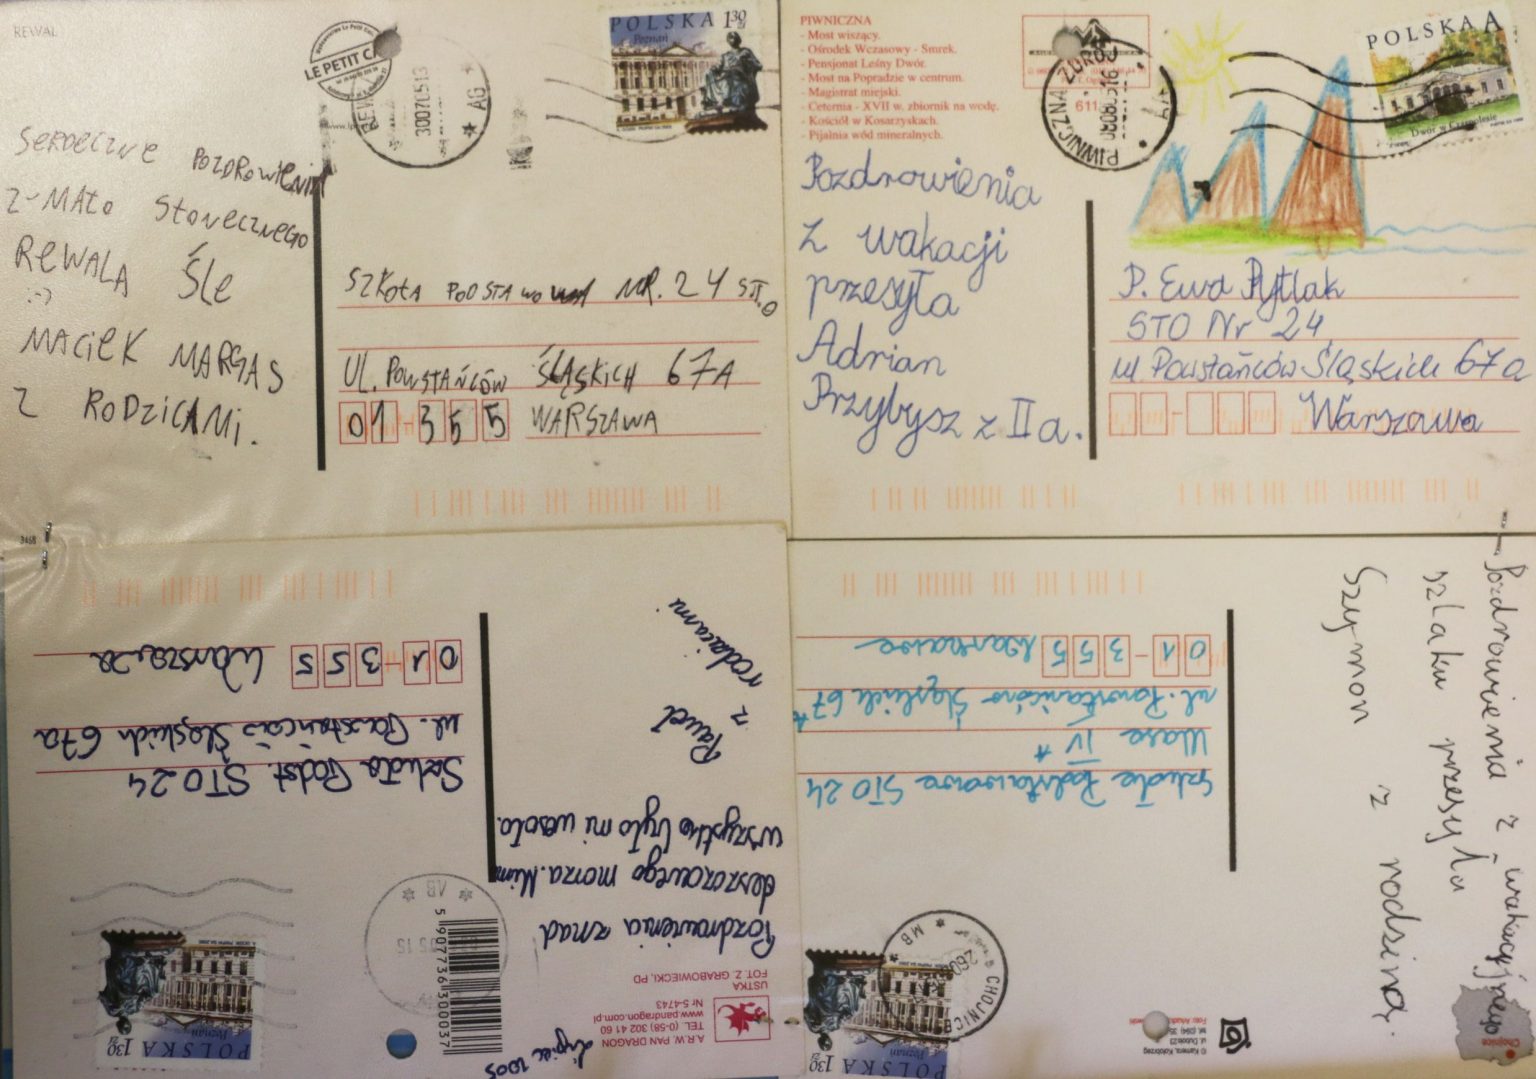 REWAL
LE PETIT CAF
300705 13
AG
POLSKA 1,30 zł
Poznań
SERDECZNE POZDROWIENIA
Z-MAŁO SŁONECZNEGO
REWALA ŚLE
:-)
MACIEK MARGAS
Z RODZICAMI.
SZKOŁA PODSTAWOWA NR. 24 STO
UL. POWSTAŃCÓW ŚLĄSKICH 67A
01-355 WARSZAWA
3468
PIWNICZNA
- Most wiszący.
- Ośrodek Wczasowy - Smrek.
- Pensjonat Leśny Dwór.
- Most na Popradzie w centrum.
- Magistrat miejski.
- Ceternia - XVII w. zbiornik na wodę.
- Kościół w Kosarzyskach.
- Pijalnia wód mineralnych.
611
PIWNICZNA ZDRÓJ
POLSKA A
Dwór w Czarnolesie
Pozdrowienia
z wakacji
przesyła
Adrian
Przybysz z II a.
P. Ewa Pytlak
STO Nr 24
ul Powstańców Śląskich 67a
Warszawa
lipiec 2005
A.R.W. PAN DRAGON
TEL. (0-58) 302 41 60
www.pandragon.com.pl
Nr 5-4743
USTKA
FOT. Z. GRABOWIECKI, PD
Pozdrowienia znad
deszczowego morza. Mimo
wszystko było mi wesoło.
Paweł
z rodzicami
5 907736 300037
AB
POLSKA 1,30 zł
Poznań
Szkoła Podst. STO 24
ul. Powstańców Śląskich 67a
01-355 Warszawa
Pozdrowienia z wakacyjnego
szlaku przesyła
Szymon z rodziną.
Chojnice
© Kamera, Kołobrzeg
ul. Dubois 23
CHOJNICE
MB
POLSKA 1,30 zł
Poznań
Szkoła Podstawowa STO 24
klasa IV A
ul. Powstańców Śląskich 67A
01-355 Warszawa